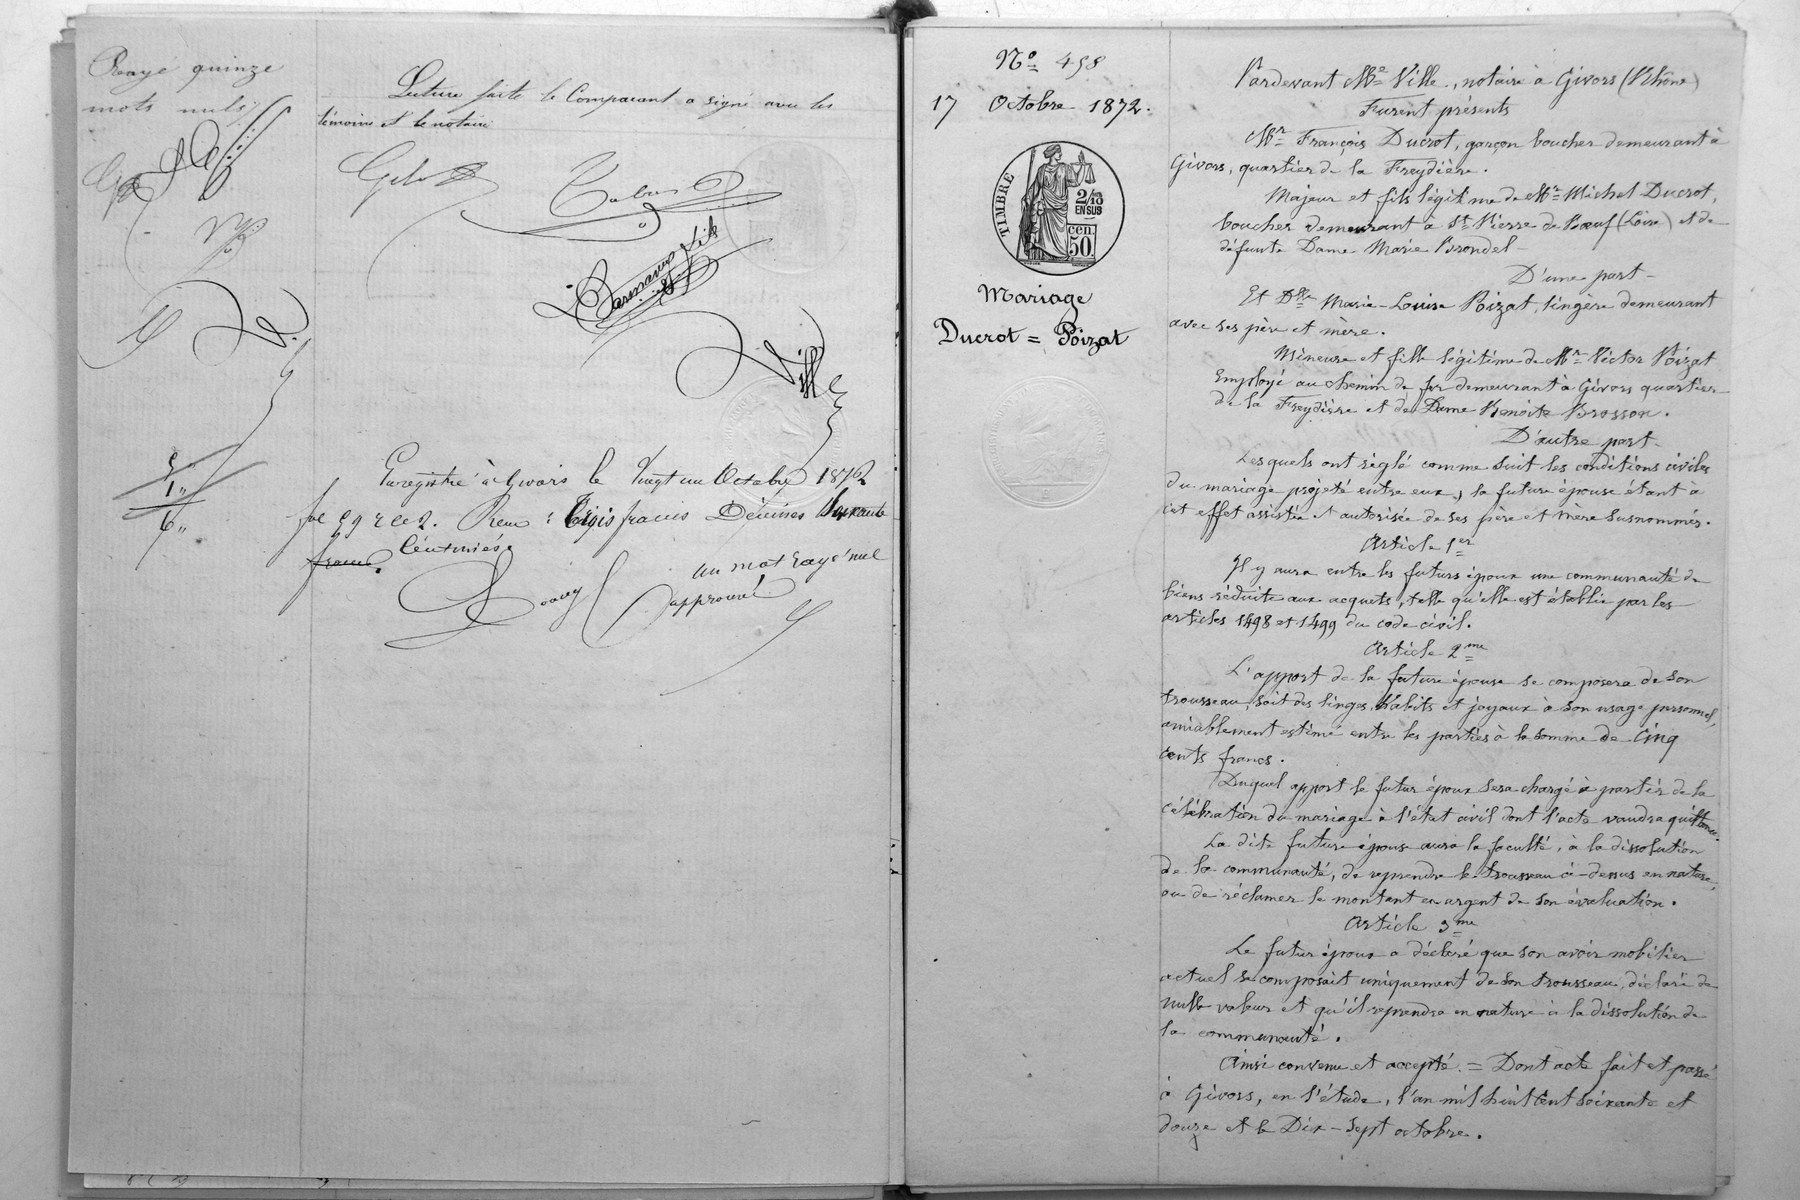 Rayé quinze
mots nuls
Lecture faite le Comparant a signé avec les
témoins et le notaire
Ville
Enregistré à Givors le Vingt un Octobre 1872
fol 59 r c 2. Recu : Cinq francs Décimes Soixante
francs. Centimes.
un mot rayé nul
approuvé
5
1 "
6 "
Nº 458
17 Octobre 1872.
TIMBRE
2/10
EN SUS
50 cen.
Mariage
Ducrot = Poizat
Pardevant Me Ville, notaire à Givors (Rhône)
Furent présents
Mr François Ducrot, garçon boucher demeurant à
Givors, quartier de la Freydière.
Majeur et fils légitime de Mr Michel Ducrot,
boucher demeurant à St Pierre de Bœuf (Loire) et de
défunte Dame Marie Brondel
D'une part
Et Dlle Marie-Louise Poizat, lingère demeurant
avec ses père et mère.
Mineure et fille légitime de Mr Victor Poizat
Employé au chemin de fer demeurant à Givors quartier
de la Freydière et de Dame Benoite Brosson.
D'autre part
Lesquels ont réglé comme suit les conditions civiles
du mariage projeté entre eux, la future épouse étant à
cet effet assistée et autorisée de ses père et mère susnommés.
Article 1er
Il y aura entre les futurs époux une communauté de
biens réduite aux acquets, telle qu'elle est établie par les
articles 1498 et 1499 du code civil.
Article 2me
L'apport de la future épouse se composera de son
trousseau, soit des linges, habits et joyaux à son usage personnel,
amiablement estimé entre les parties à la somme de Cinq
cents francs.
Duquel apport le futur époux sera chargé à partir de la
célébration du mariage à l'état civil dont l'acte vaudra quittance.
La dite future épouse aura la faculté, à la dissolution
de la communauté, de reprendre le trousseau ci-dessus en nature,
ou de réclamer le montant en argent de son évaluation.
Article 3me
Le futur époux a déclaré que son avoir mobilier
actuel se composait uniquement de son trousseau, déclaré de
nulle valeur et qu'il reprendra en nature à la dissolution de
la communauté.
Ainsi convenu et accepté. = Dont acte fait et passé
à Givors, en l'étude, l'an mil huit cent soixante et
douze et le Dix-sept octobre.